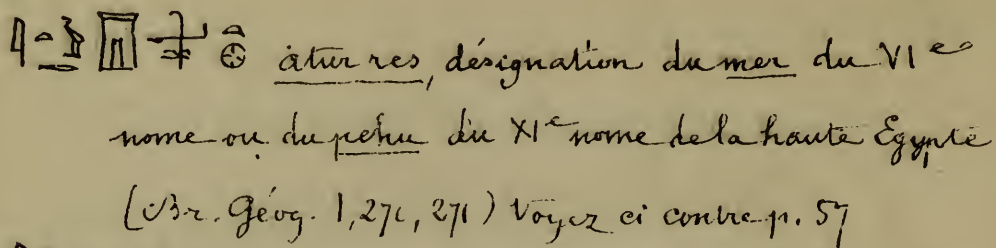 âtur res, désignation du mer du VIe
nome ou du pehu du XIe nome de la haute Egypte
(Br. Géog. 1, 271, 271) Voyez ci contre p. 57